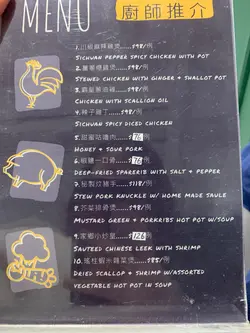 MENU 廚師推介
1.川椒麻辣雞煲......$98/例
SICHUAN PEPPER SPICY CHICKEN WITH POT
2.薑蔥雞煲......$98/例
STEWED CHICKEN WITH GINGER & SHALLOT POT
3.蔥油雞......$98/例
CHICKEN WITH SCALLION OIL
4.辣子雞丁......$98/例
SICHUAN SPICY DICED CHICKEN
5.甜蜜咕嚕肉......$76/例
HONEY & SOUR PORK
6.椒鹽一口骨......$76/例
DEEP-FRIED SPARERIB WITH SALT & PEPPER
7.秘製炆豬手......$118/例
STEW PORK KNUCKLE W/ HOME MADE SAULE
8.芥菜排骨煲......$98/例
MUSTARD GREEN & PORKRIBS HOT POT W/SOUP
9.家鄉小炒皇......$126/例
SAUTEED CHINESE LEEK WITH SHRIMP
10.瑤柱蝦米雜菜煲......$85/例
DRIED SCALLOP & SHRIMP W/ASSORTED
VEGETABLE HOT POT IN SOUP